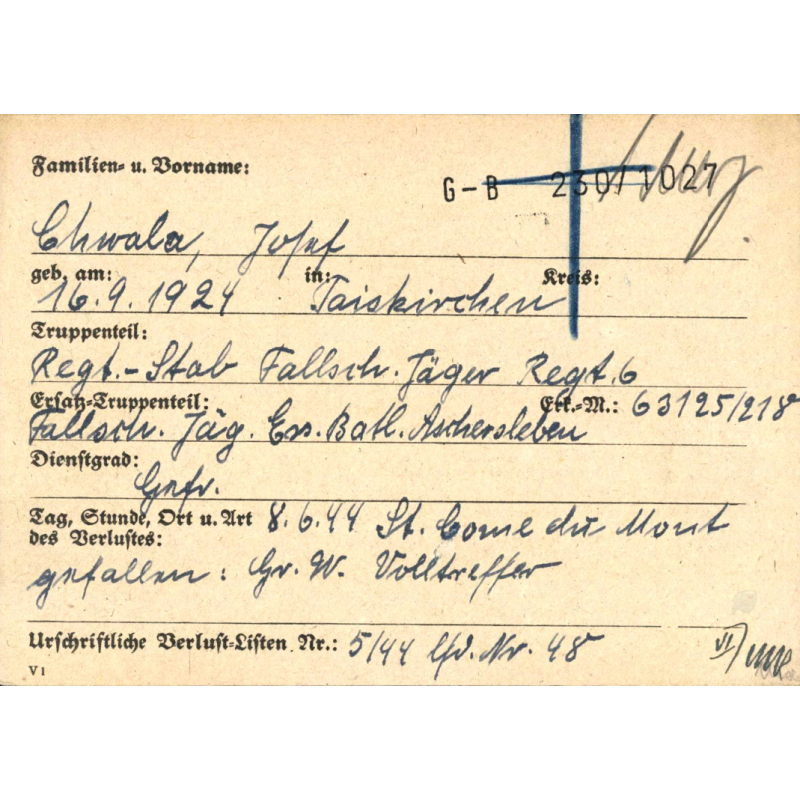 Familien- u. Vorname:
G-B 230/1027
Chwala, Josef
geb. am: in: Kreis:
16.9.1924 Taiskirchen
Truppenteil:
Regt.-Stab Fallsch. Jäger Regt. 6
Ersatz-Truppenteil: Erk.-M.: 63125/218
Fallsch. Jäg. Ers. Batl. Aschersleben
Dienstgrad:
Gefr.
Tag, Stunde, Ort u. Art 8.6.44 St. Come du Mont
des Verlustes:
gefallen: Gr. W. Volltreffer
Urschriftliche Verlust-Listen Nr.: 5/44 lfd. Nr. 48
VI)
V1